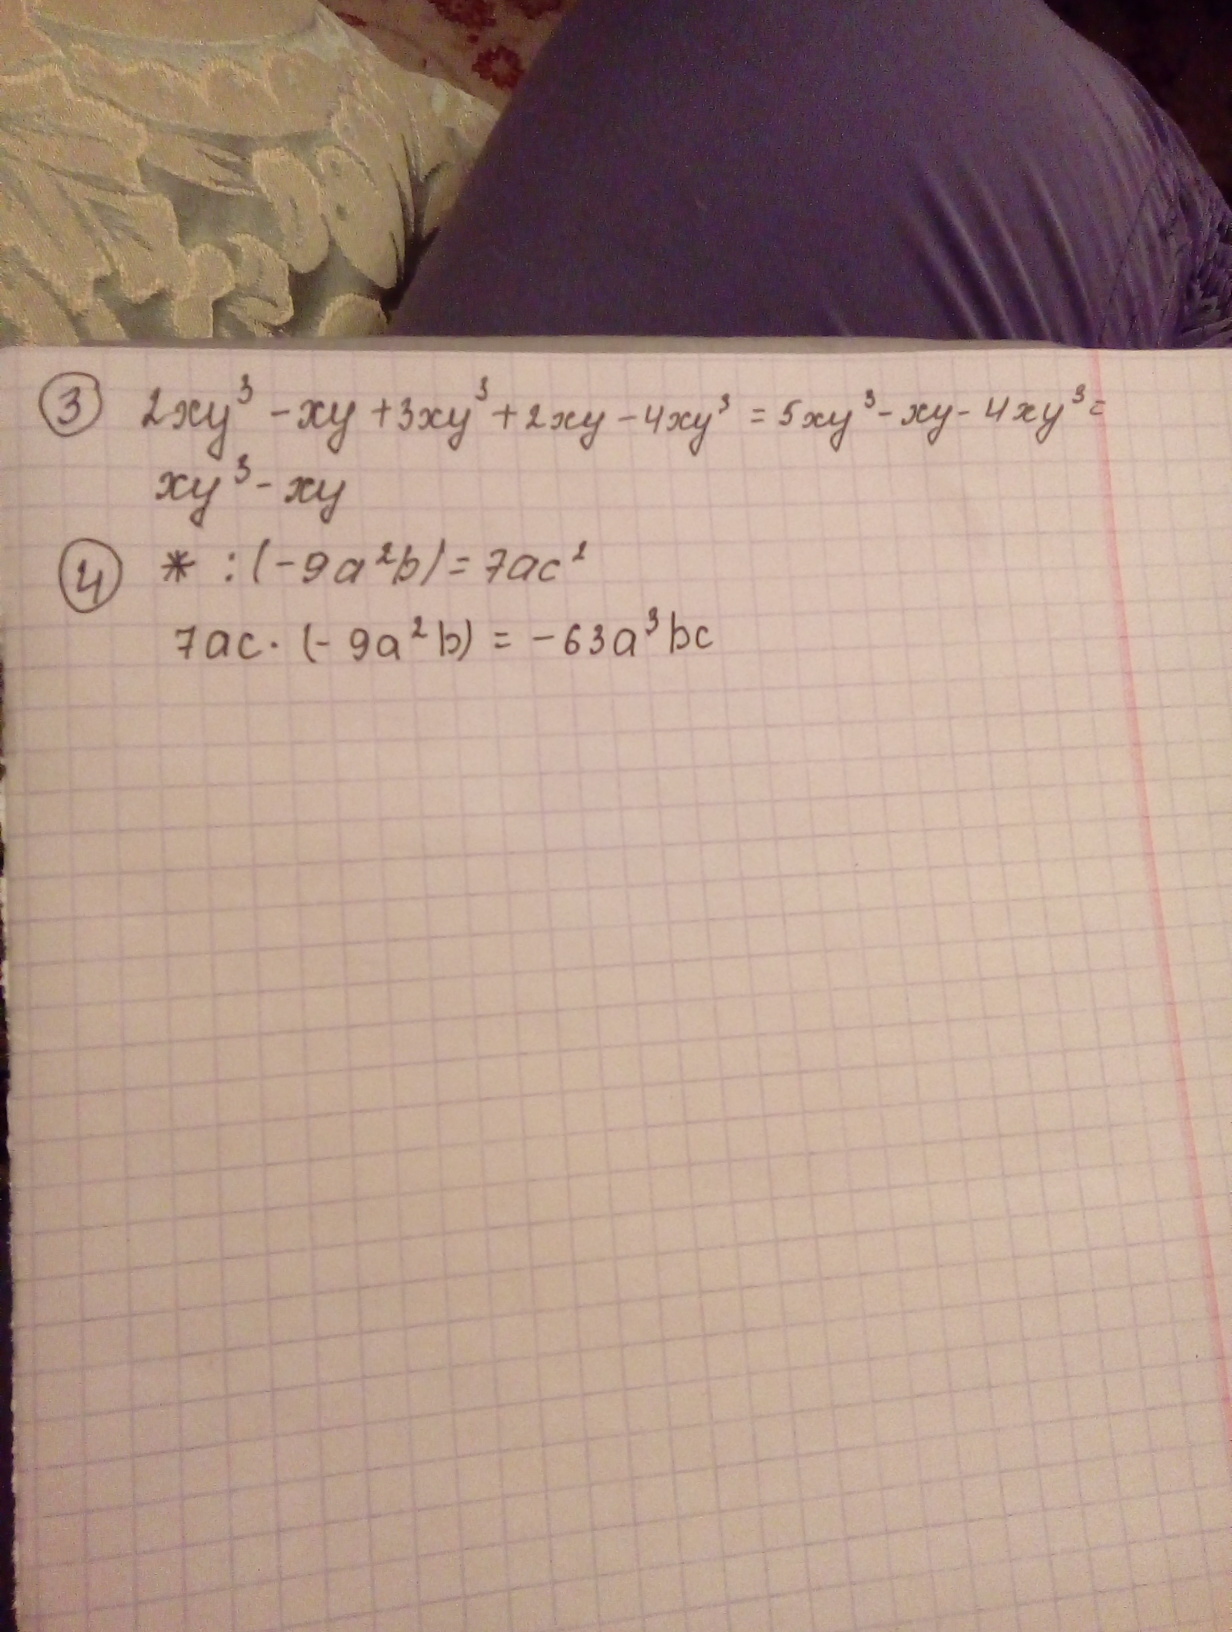 ③ 2xy³ - xy + 3xy³ + 2xy - 4xy³ = 5xy³ - xy - 4xy³ =
xy³ - xy
④ * : (-9a²b) = 7ac²
7ac · (-9a²b) = -63a³bc